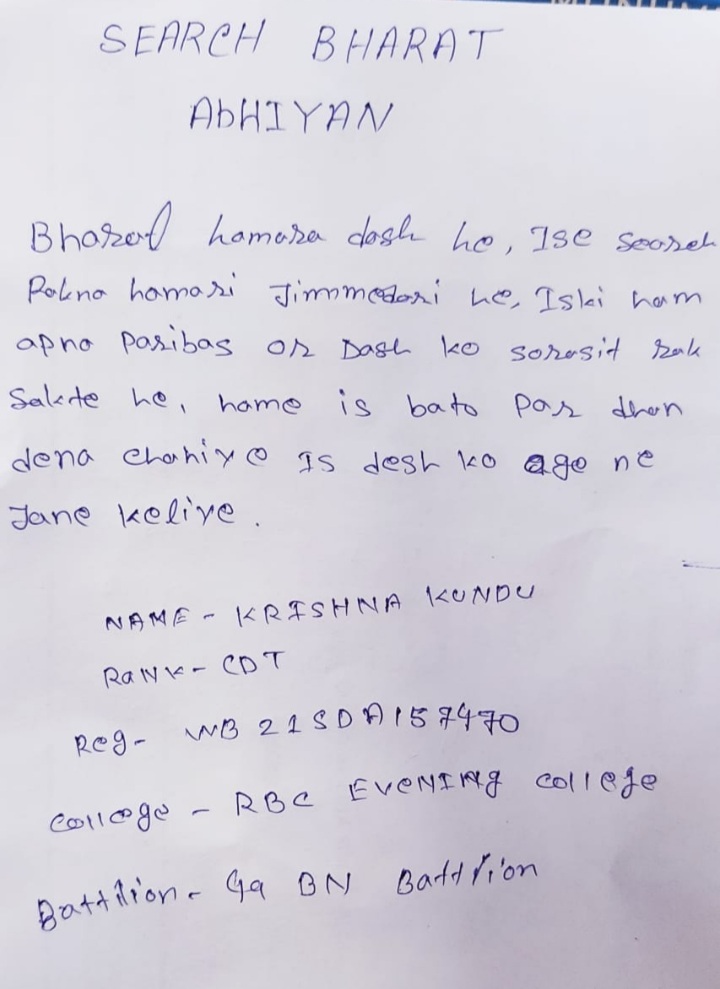 SEARCH BHARAT
AbHIYAN
Bharat hamara dash he, Ise search
Rakna hamari Jimmedari he, Iski ham
apna Paribar or Dash ko sorosit rak
Sakte he, hame is bato par dhan
dena chahiye Is desh ko age ne
Jane keliye.
NAME - KRISHNA KUNDU
RaNK - CDT
Reg- WB 21SDA157470
College - RBC EVENINg college
Battilion - 49 BN Battlion